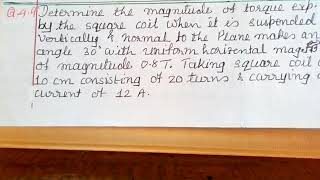 Q.4.9 Determine the magnitude of torque exp.
by the square coil when it is suspended
vertically & normal to the Plane makes an
angle 30° with uniform horizontal mag.
of magnitude 0.8T. Taking square coil o
10 cm consisting of 20 turns & carrying a
current of 12 A.